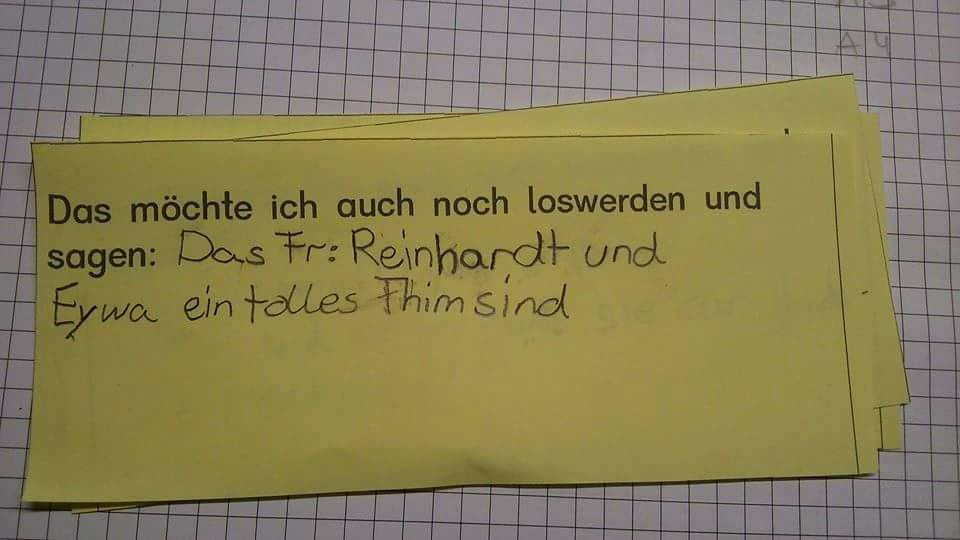 A 4
Das möchte ich auch noch loswerden und
sagen: Das Fr: Reinhardt und
Eywa ein tolles Thim sind